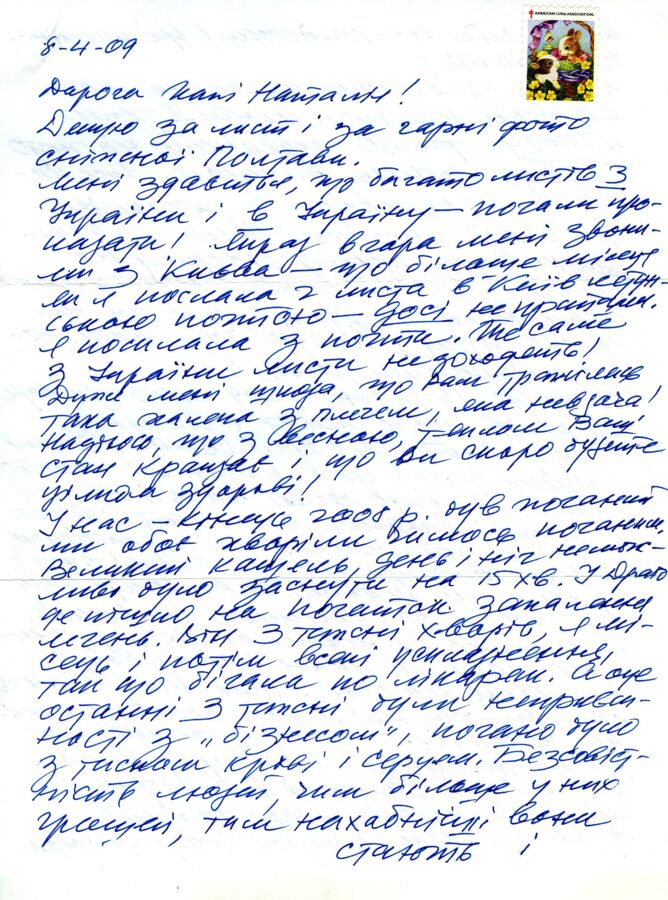 AMERICAN LUNG ASSOCIATION.
8-4-09
Дорога Пані Наталю!
Дякую за лист і за гарні фото
сніжної Полтави.
Мені здається, що багато листів з
України і в Україну – почали про-
падати! Якраз вчора мені дзвони-
ли з Києва – що більше місяця
як я послала 2 листа в Київ летун-
ською поштою – досі не прийшли.
Я посилала з пошти. Те саме
з України листи не доходять!
Дуже мені шкода, що Вам трапилась
така халепа з плечем, яка невдача!
Надіюсь, що з весною, теплом Ваш
стан кращає і що ви скоро будете
цілком здорові!
У нас – кінець 2008 р. був поганий
ми обоє хворіли чимось поганим.
Великий кашель, день і ніч немож-
ливо було заснути на 15 хв. У
на початок запалення
легень. Він 3 тижні хворів, я мі-
сяць і потім всякі ускладнення,
так що бігала по лікарях. А оце
останні 3 тижні були неприєм-
ності з „бізнесом", погано було
з тиском крові і серцем. Безсовіст-
ність людей, чим більше у них
грошей, тим нахабніші вони
стають і